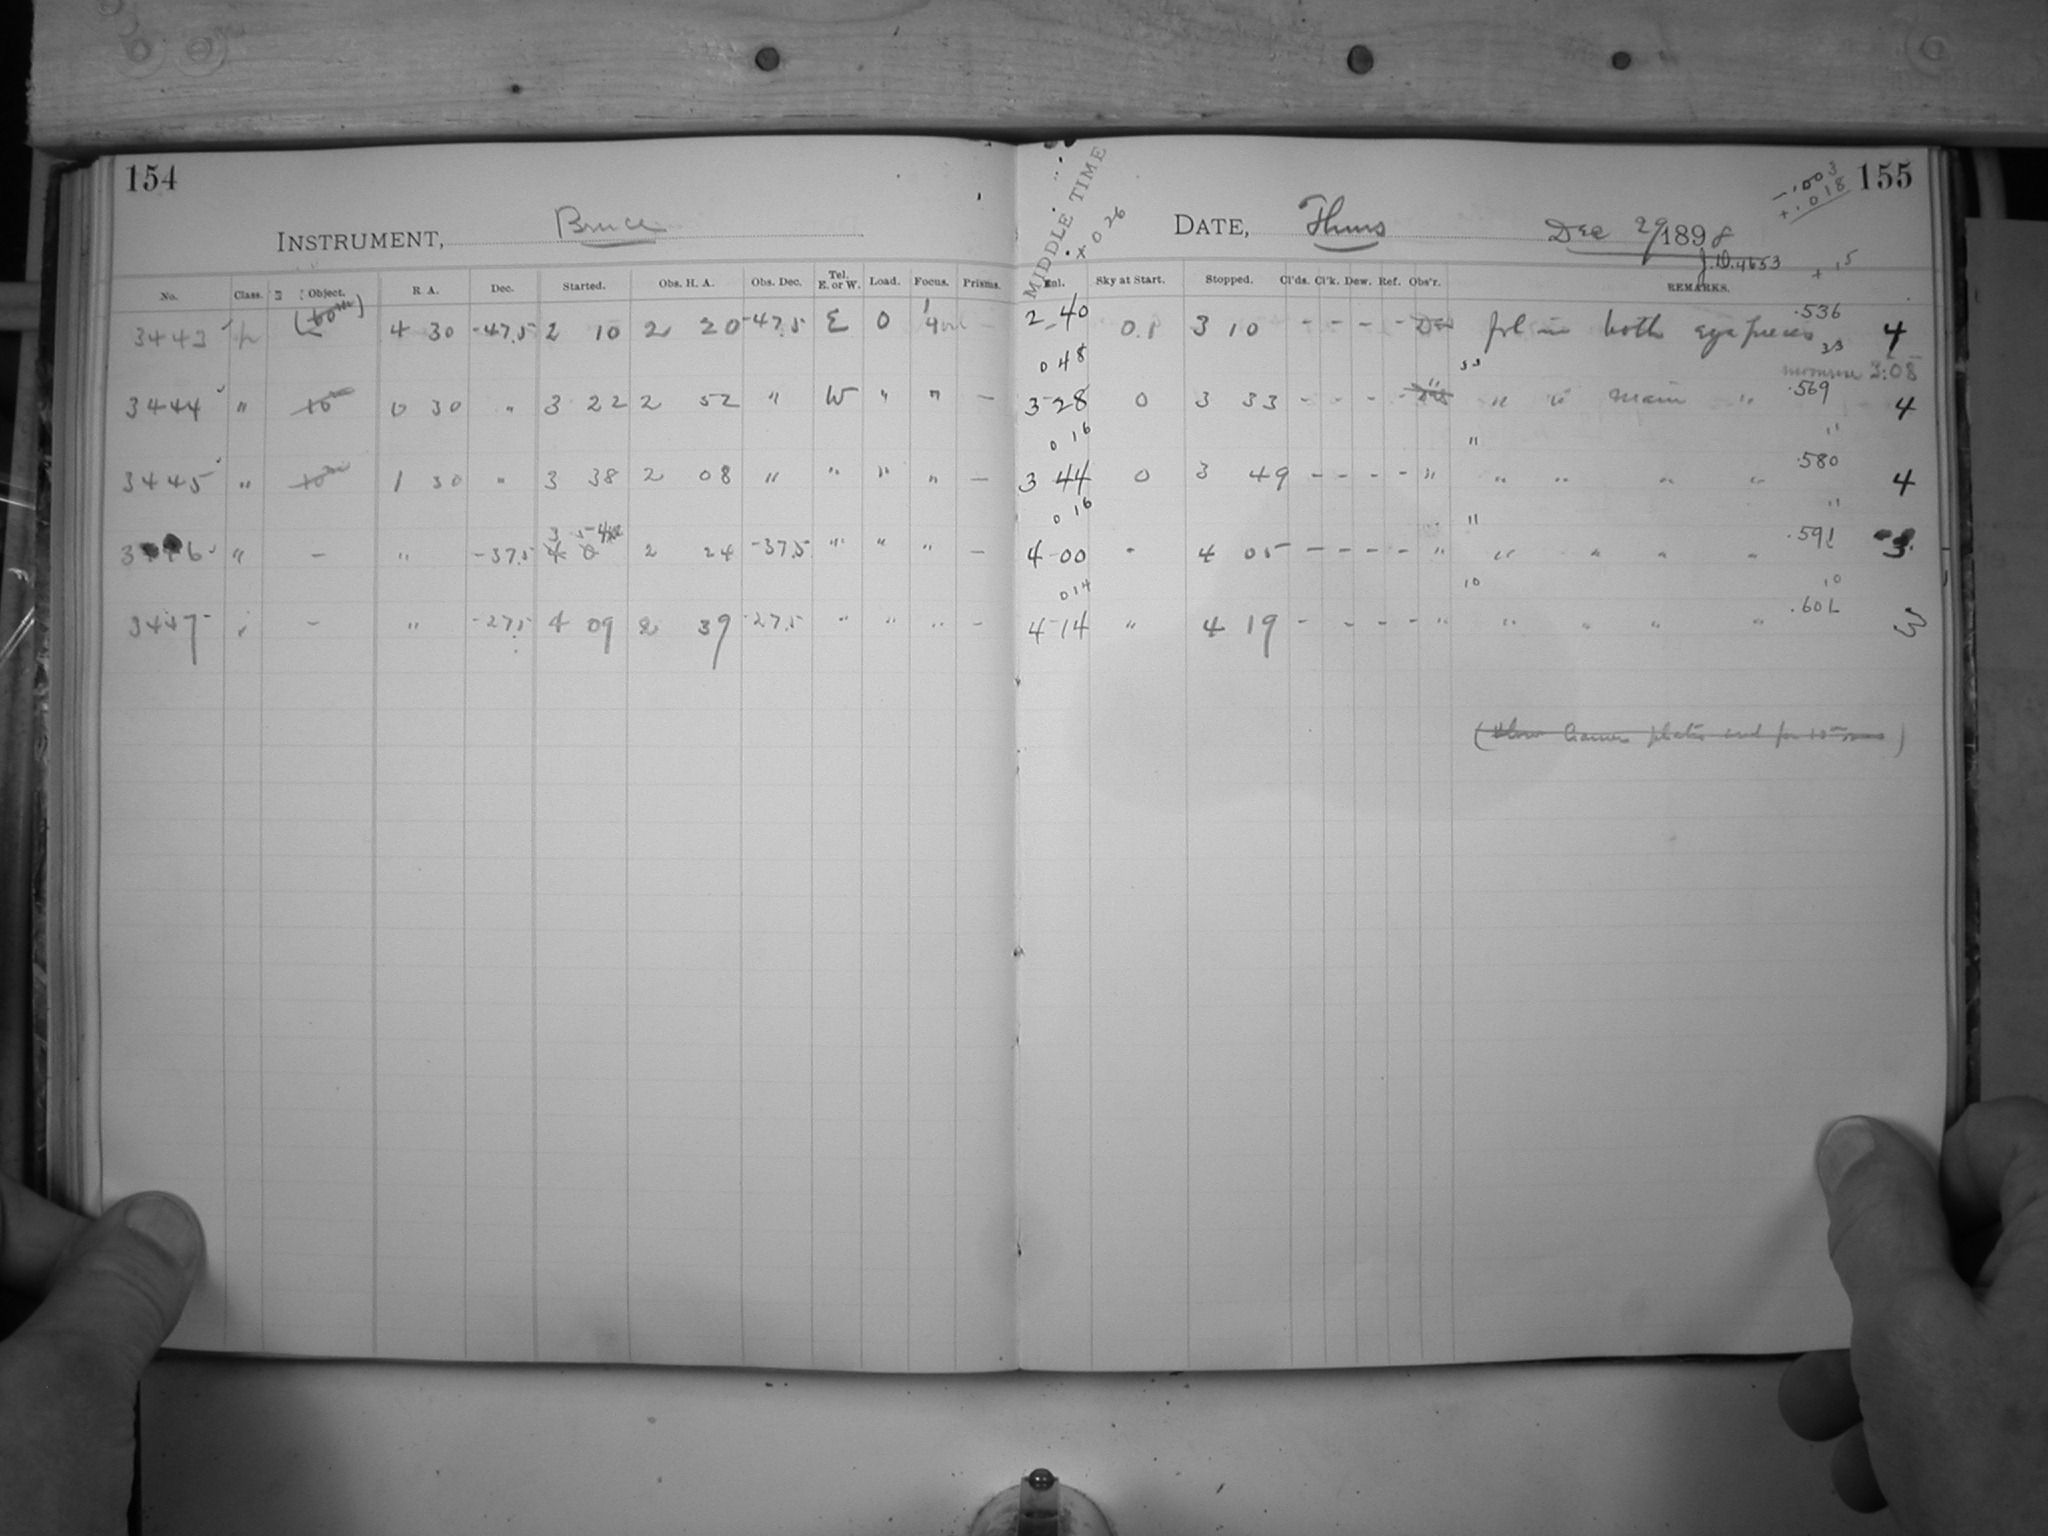 154
INSTRUMENT, Bruce
No. Class. Object. R A. Dec. Started. Obs. H. A. Obs. Dec. Tel. E. or W. Load. Focus. Prisms.
3443 (60m) 4 30 -47.5 2 10 2 20 -47.5 E 0
3444 " 10m 0 30 " 3 22 2 52 " W " " -
3445 " 10m 1 30 " 3 38 2 08 " " " " -
3446 " - " -37.5 3 54 2 24 -37.5 " " " -
3447 " - " -27.5 4 09 2 39 -27.5 " " " -
155
-.003
+.018
MIDDLE TIME
+026
DATE, Thurs Dec 29 1898
J.D. 4653 +.5
Sky at Start. Stopped. Cl'ds. Cl'k. Dew. Ref. Obs'r. REMARKS.
2-40 0.1 3 10 - - - - in both eye pieces .536 4
0 48 33 33
moonrise 2:08
3-28 0 3 33 - - - - " " " main " .569 4
0 16 " "
3 44 0 3 49 - - - - " " " " " .580 4
0 16 " "
4-00 " 4 05 - - - - " " " " " .591 3
0 14 10 10
4-14 " 4 19 - - - - " " " " " .601 3
plates and for 10m